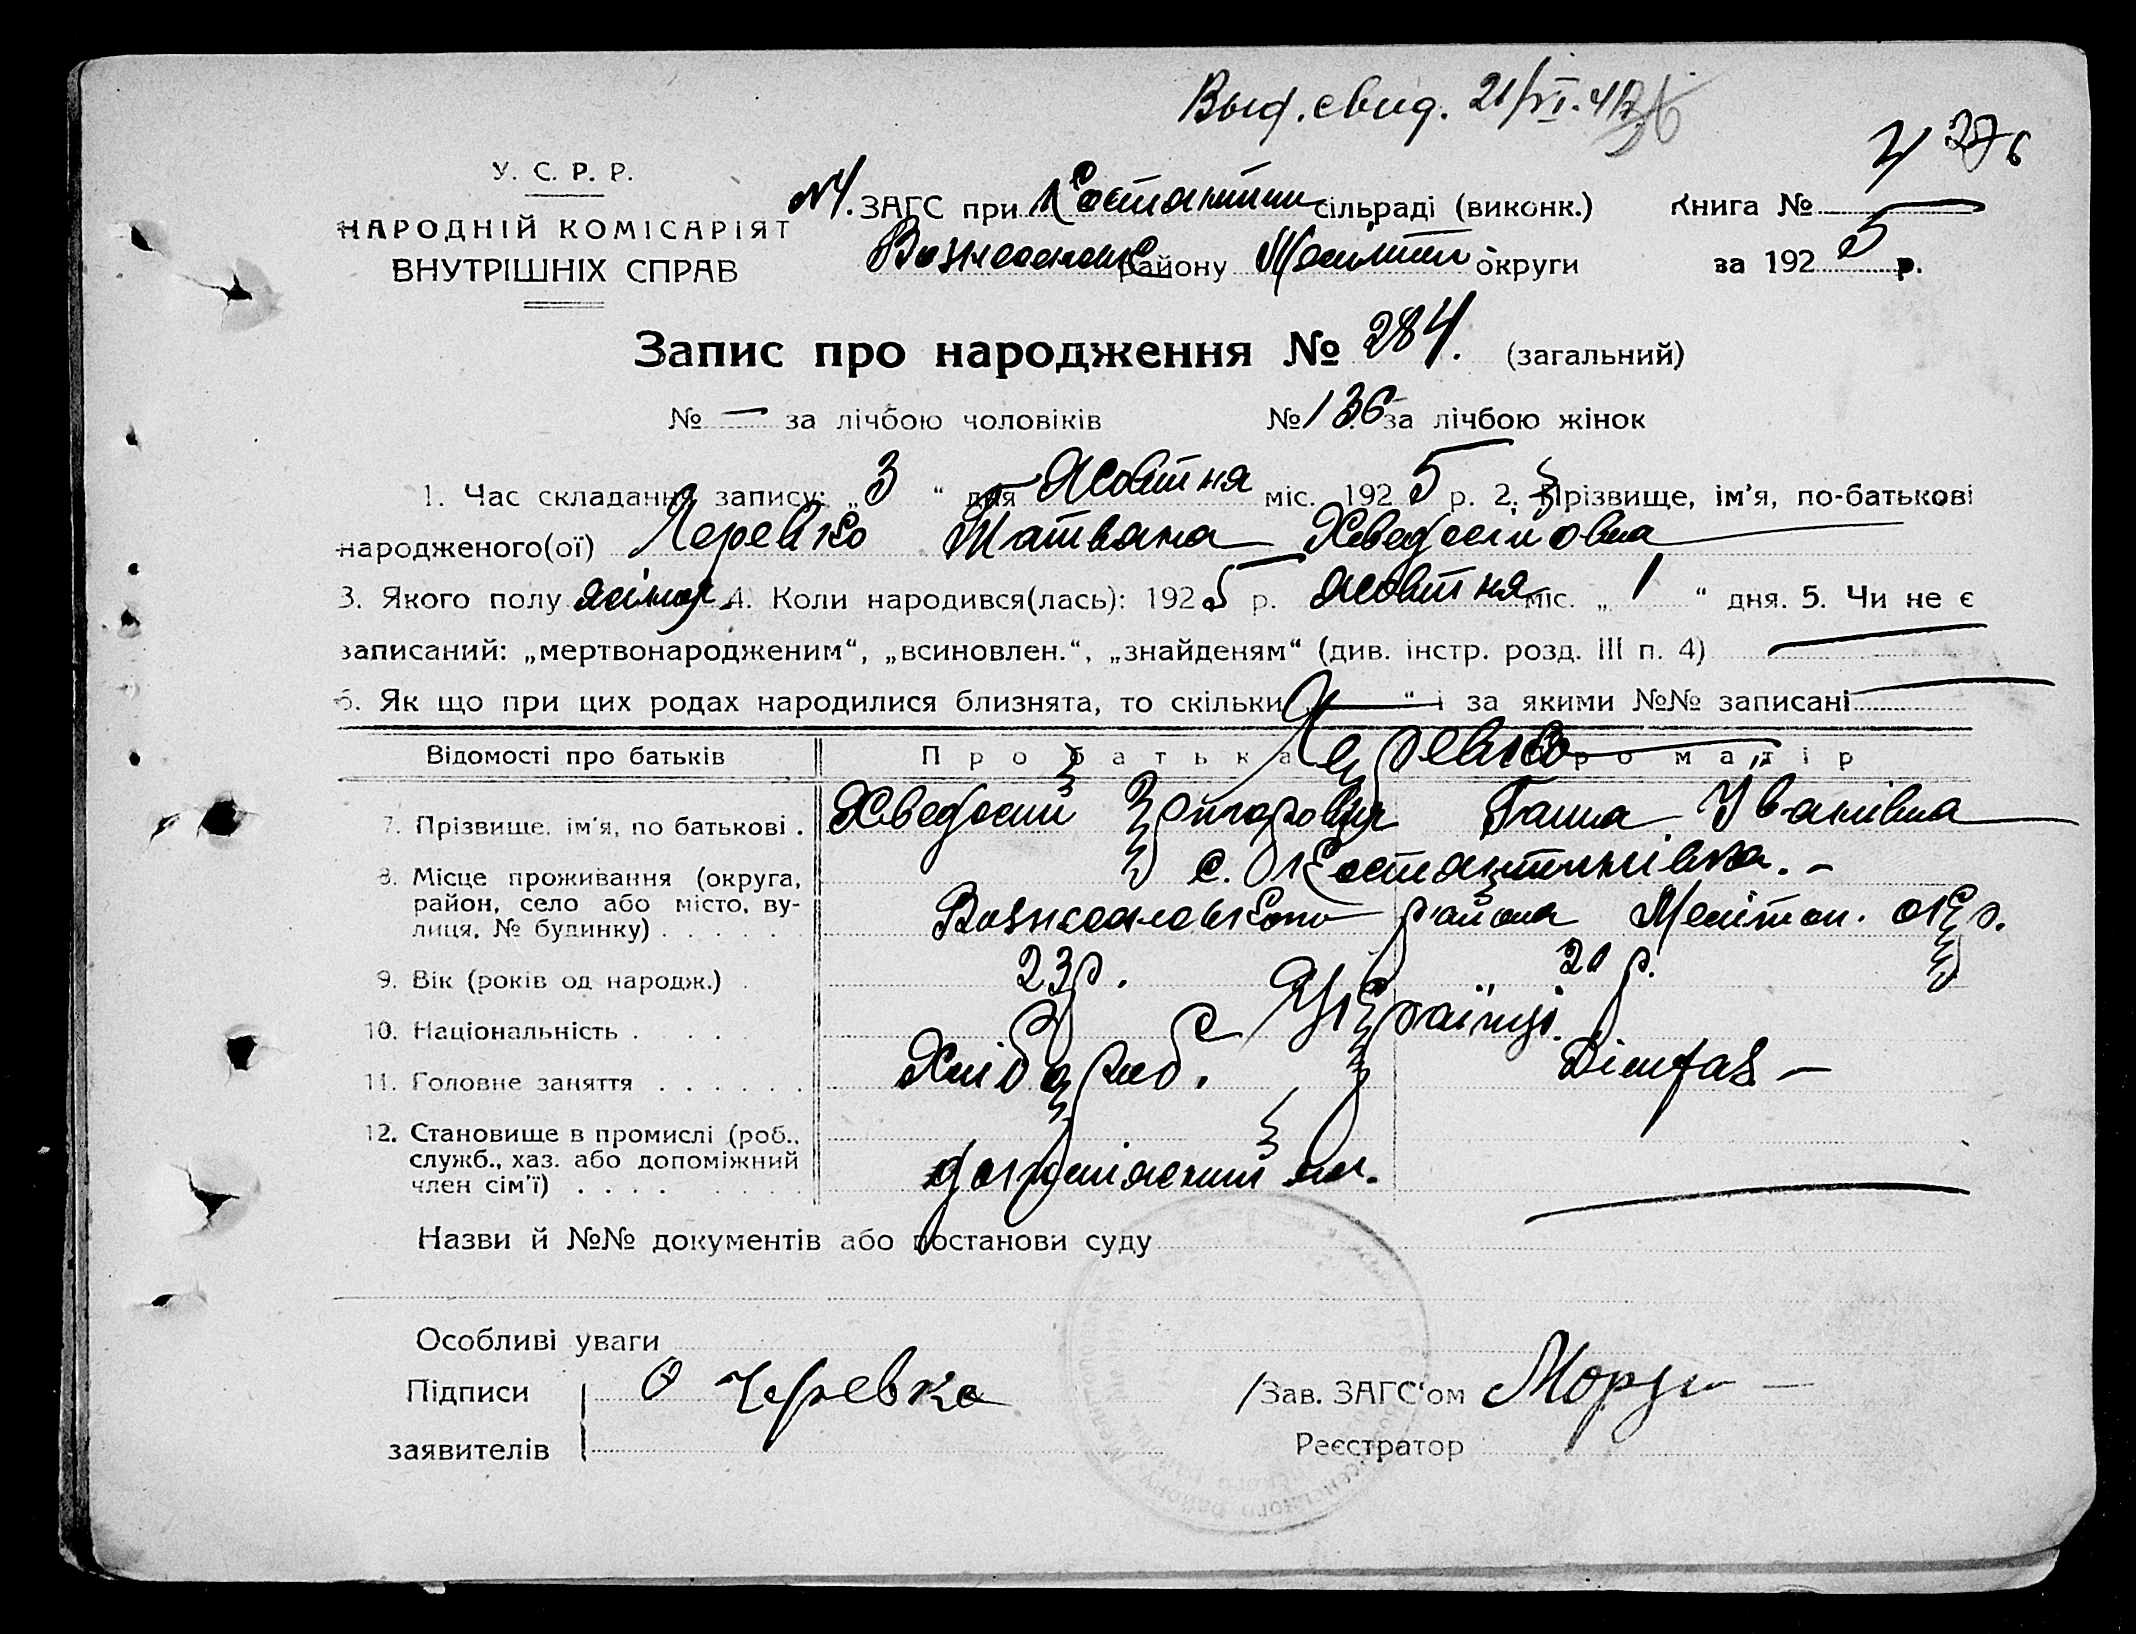 Выд. свид. 21/VI.47
376
У. С. Р. Р.
НАРОДНІЙ КОМІСАРІЯТ
ВНУТРІШНІХ СПРАВ
№1. ЗАГС при Костантин сільраді (виконк.) Книга №
Вознесенськ району Меліт округи за 1925 р.
Запис про народження № 284. (загальний)
№ — за лічбою чоловіків № 136 за лічбою жінок
1. Час складання запису: „3“ дня Жовтня міс. 1925 р. 2. Прізвище, ім'я, по-батькові
народженого(ої) Черевко Татьяна Хведосіївна
3. Якого полу жіноч. 4. Коли народився(лась): 1925 р. жовтня міс. „1“ дня. 5. Чи не є
записаний: „мертвонародженим“, „всиновлен.“, „знайденям“ (див. інстр. розд. III п. 4) —
6. Як що при цих родах народилися близнята, то скільки „—“ і за якими №№ записані —
Відомості про батьків Про батька Про матір
Черевко
7. Прізвище, ім'я, по батькові . Хведосий Ганна Іванівна
8. Місце проживання (округа, с. Костантинівка. –
район, село або місто, ву-
лиця, № будинку) . . . . . . Вознесенського района Мелітоп. окр.
9. Вік (років од народж.) . 23 р. 20 р.
10. Національність . . . . Українці.
11. Головне заняття . . . . . . Хлібороб.
12. Становище в промислі (роб.,
служб., хаз. або допоміжний допоміжний чл.
член сім'ї) . . . . . . . .
Назви й №№ документів або постанови суду
Особливі уваги
Підписи Черевко Зав. ЗАГС'ом
заявителів Реєстратор